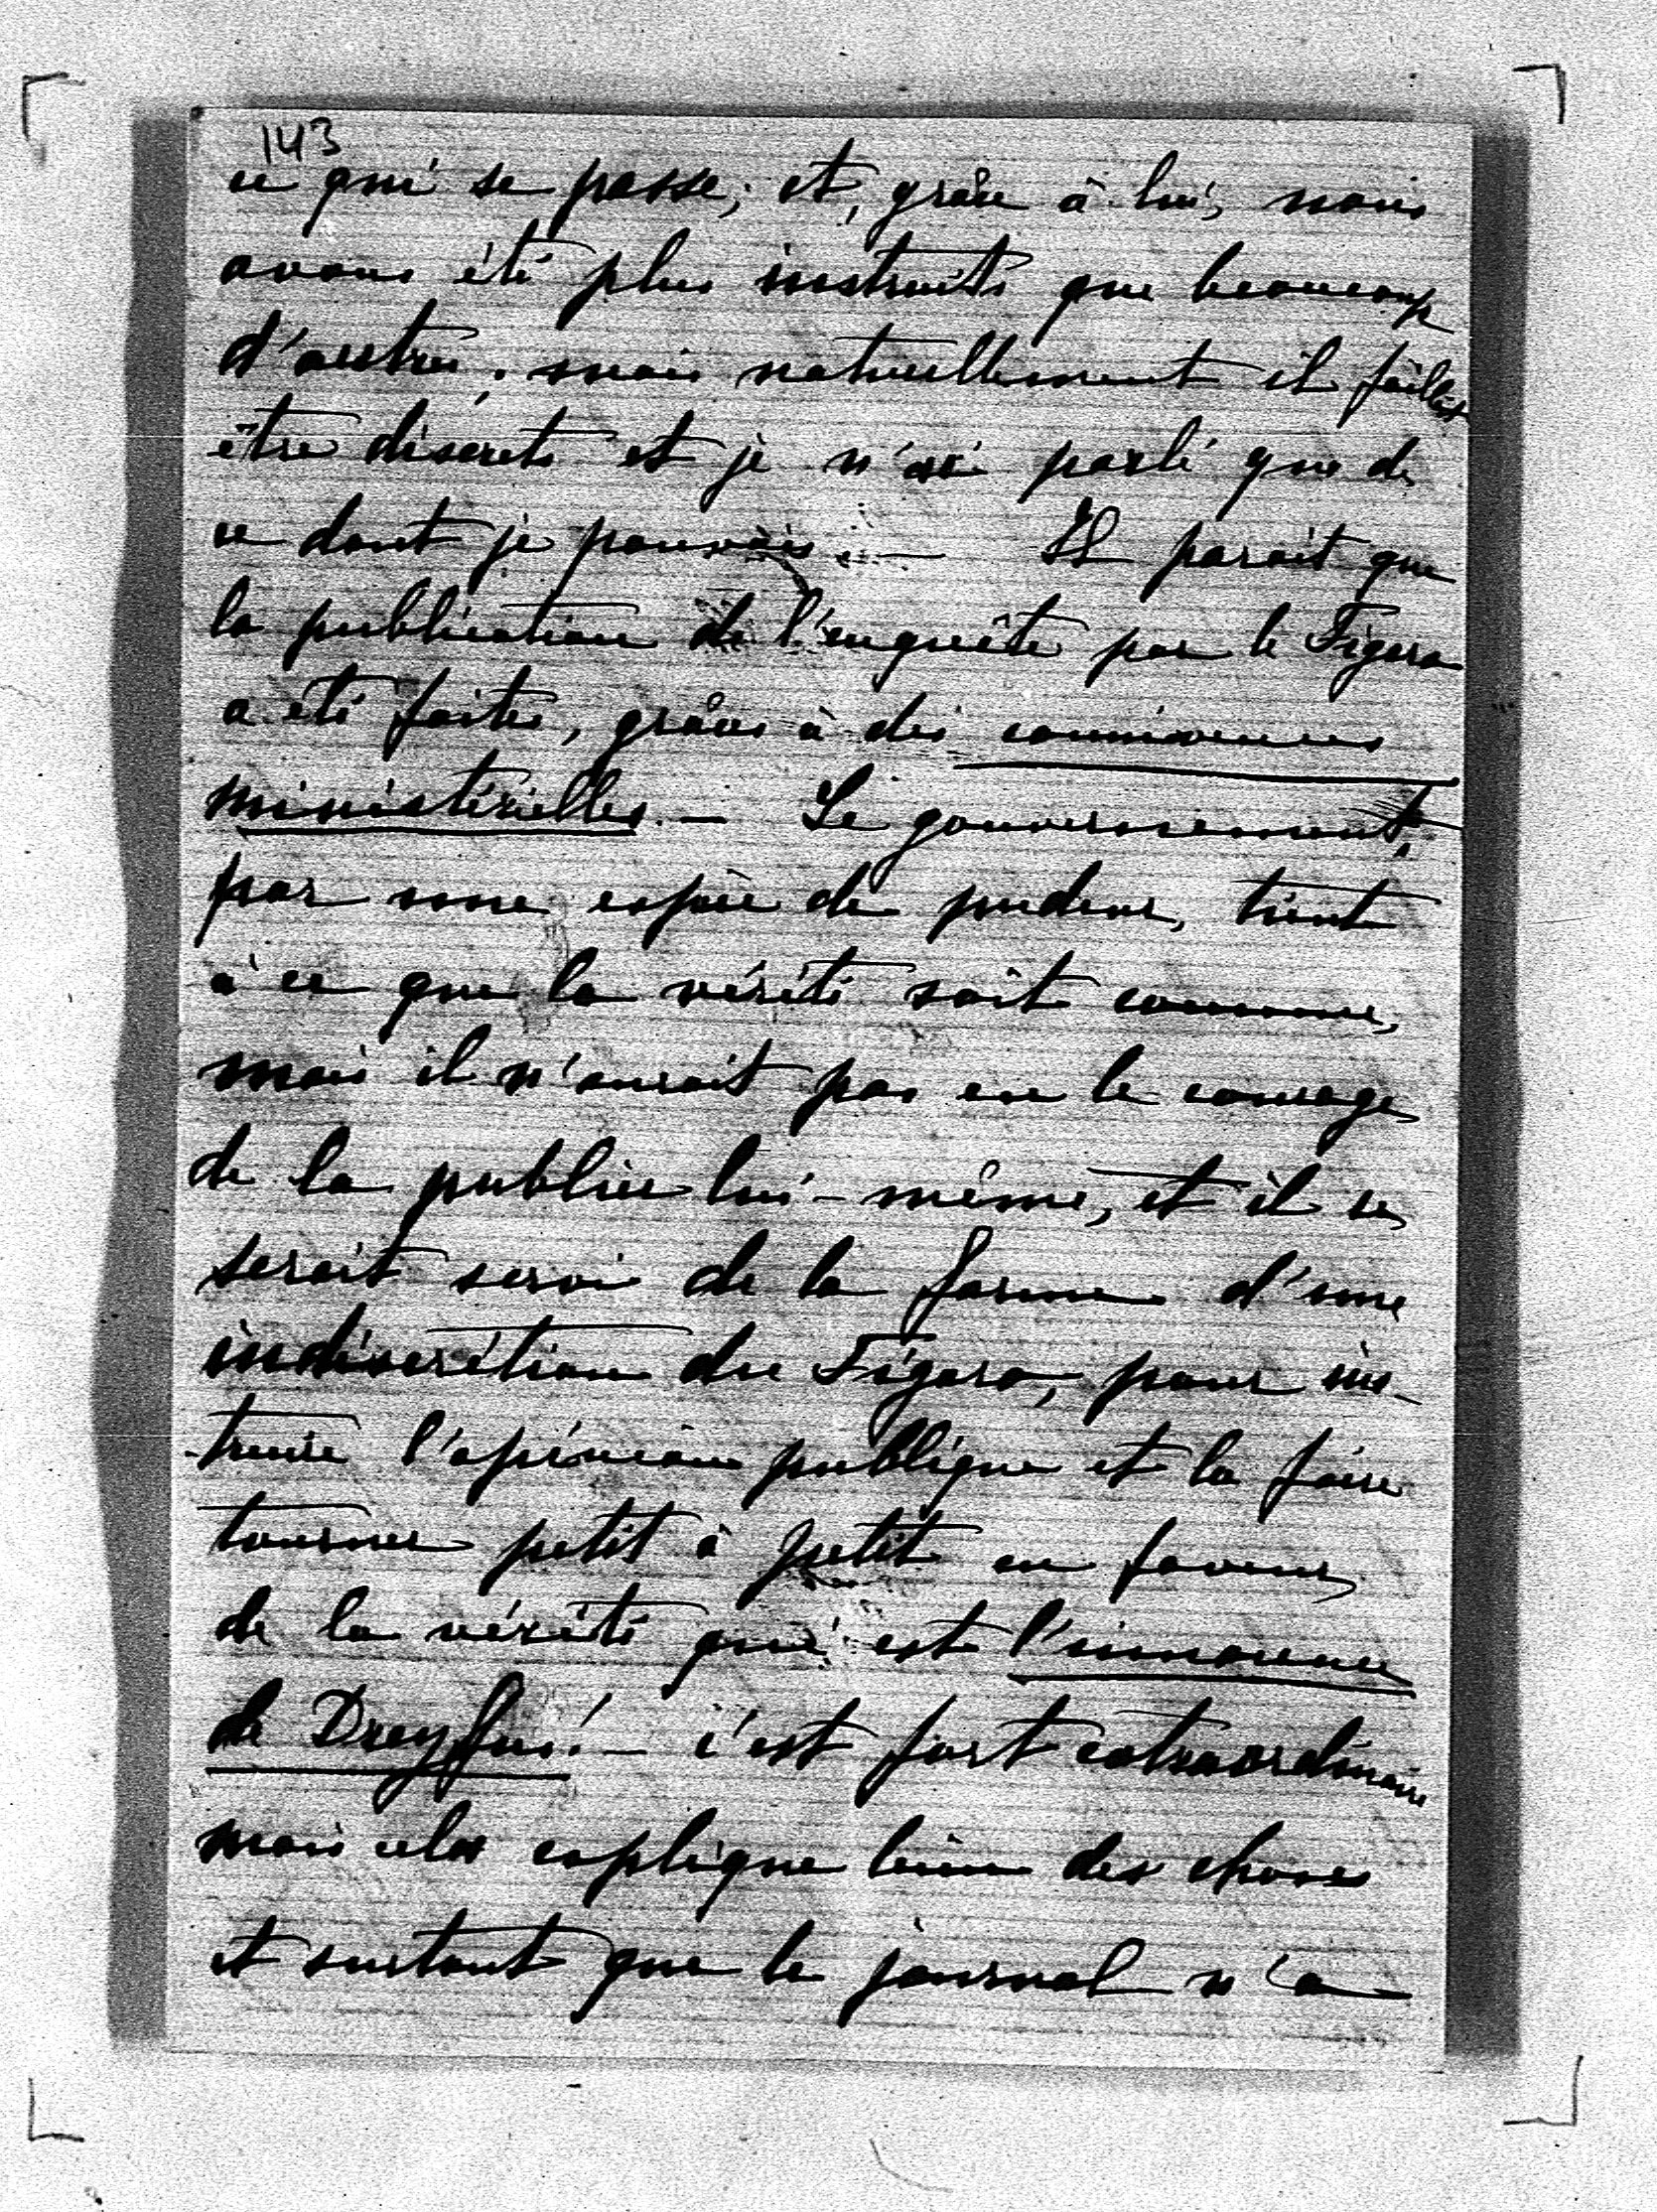 143
ce qui se passe; et, grâce à lui, nous
avons été plus instruits que beaucoup
d'autres; mais naturellement il fallait
être discrets et je n'ai parlé que de
ce dont je pouvais. — Il parait que
la publication de l'enquête par le Figaro
a été faite, grâce à des connivences
ministérielles. — Le gouvernement,
par une espèce de pudeur, tient
à ce que la vérité soit connue,
mais il n'aurait pas eu le courage
de la publier lui-même, et il se
serait servi de la forme d'une
indiscrétion du Figaro, pour ins-
-truire l'opinion publique et la faire
tourner petit à petit en faveur
de la vérité qui est l'innocence
de Dreyfus! — c'est fort extraordinaire
mais cela explique bien des choses
et surtout que le journal n'a